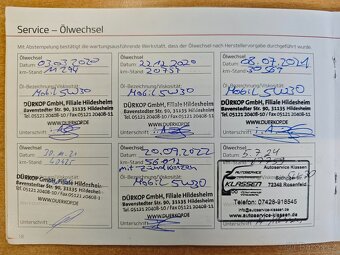 Service – Ölwechsel
Mit Abstempelung bestätigt die wartungsausführende Werkstatt, dass der Ölwechsel nach Herstellervorgabe durchgeführt wurde.
Ölwechsel
Datum 03.03.2020
km-Stand 11294
Öl-Bezeichnung/Viskosität
Mobil 5W30
DÜRKOP GmbH, Filiale Hildesheim
Bavenstedter Str. 90, 31135 Hildesheim
Tel. 05121 20408-10 / Fax 05121 20408-11
WWW.DUERKOP.DE
Unterschrift
Ölwechsel
Datum 22.12.2020
km-Stand 20737
Öl-Bezeichnung/Viskosität
Mobil 5W30
DÜRKOP GmbH, Filiale Hildesheim
Bavenstedter Str. 90, 31135 Hildesheim
Tel. 05121 20408-10 / Fax 05121 20408-11
WWW.DUERKOP.DE
Unterschrift
Ölwechsel
Datum 08.07.2021
km-Stand
Öl-Bezeichnung/Viskosität
Mobil 5W30
DÜRKOP GmbH, Filiale Hildesheim
Bavenstedter Str. 90, 31135 Hildesheim
Tel. 05121 20408-10 / Fax 05121 20408-11
WWW.DUERKOP.DE
Unterschrift
Ölwechsel
Datum
km-Stand
Öl-Bezeichnung/Viskosität
DÜRKOP GmbH, Filiale Hildesheim
Bavenstedter Str. 90, 31135 Hildesheim
Tel. 05121 20408-10 / Fax 05121 20408-11
WWW.DUERKOP.DE
Unterschrift
Ölwechsel
Datum 20.09.2022
km-Stand
mit Zündkerzen
Mobil 5W30
DÜRKOP GmbH, Filiale Hildesheim
Bavenstedter Str. 90, 31135 Hildesheim
Tel. 05121 20408-10 / Fax 05121 20408-11
WWW.DUERKOP.DE
Unterschrift
Ölwechsel
Datum 5.7.24
km-Stand
Autoservice Klassen
KLASSEN
72348 Rosenfeld
Telefon: 07428-918545
www.autoservice-klassen.de
Unterschrift